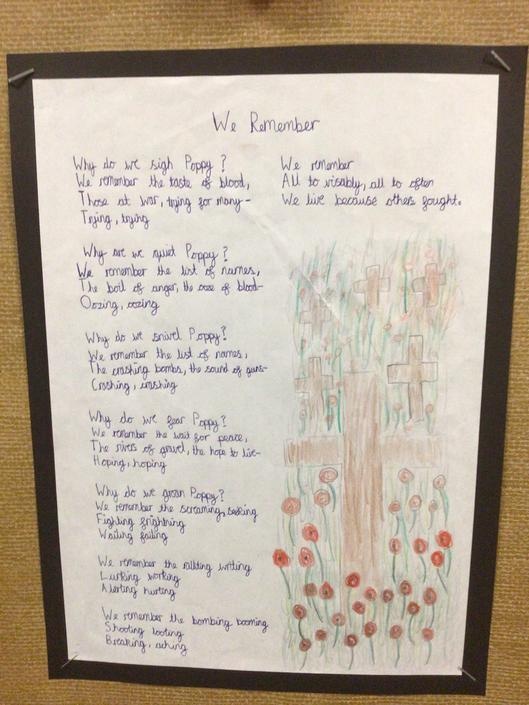 We Remember
Why do we sigh Poppy?
We remember the taste of blood,
Those at war, trying for many-
Trying, trying
Why are we quiet Poppy?
We remember the list of names,
The boil of anger, the ooze of blood-
Oozing, oozing
Why do we snivel Poppy?
We remember the list of names,
The crashing bombs, the sound of guns-
Crashing, crashing
Why do we fear Poppy?
We remember the wait for peace,
The rivers of gravel, the hope to live-
Hoping, hoping
Why do we groan Poppy?
We remember the screaming, seeking
Fighting frightning
Wailing failing
We remember the writing
Lurking working
Alerting hurting
We remember the bombing booming
Shooting looting
Breaking, aching
We remember
All to visably, all to often
We live because others fought.